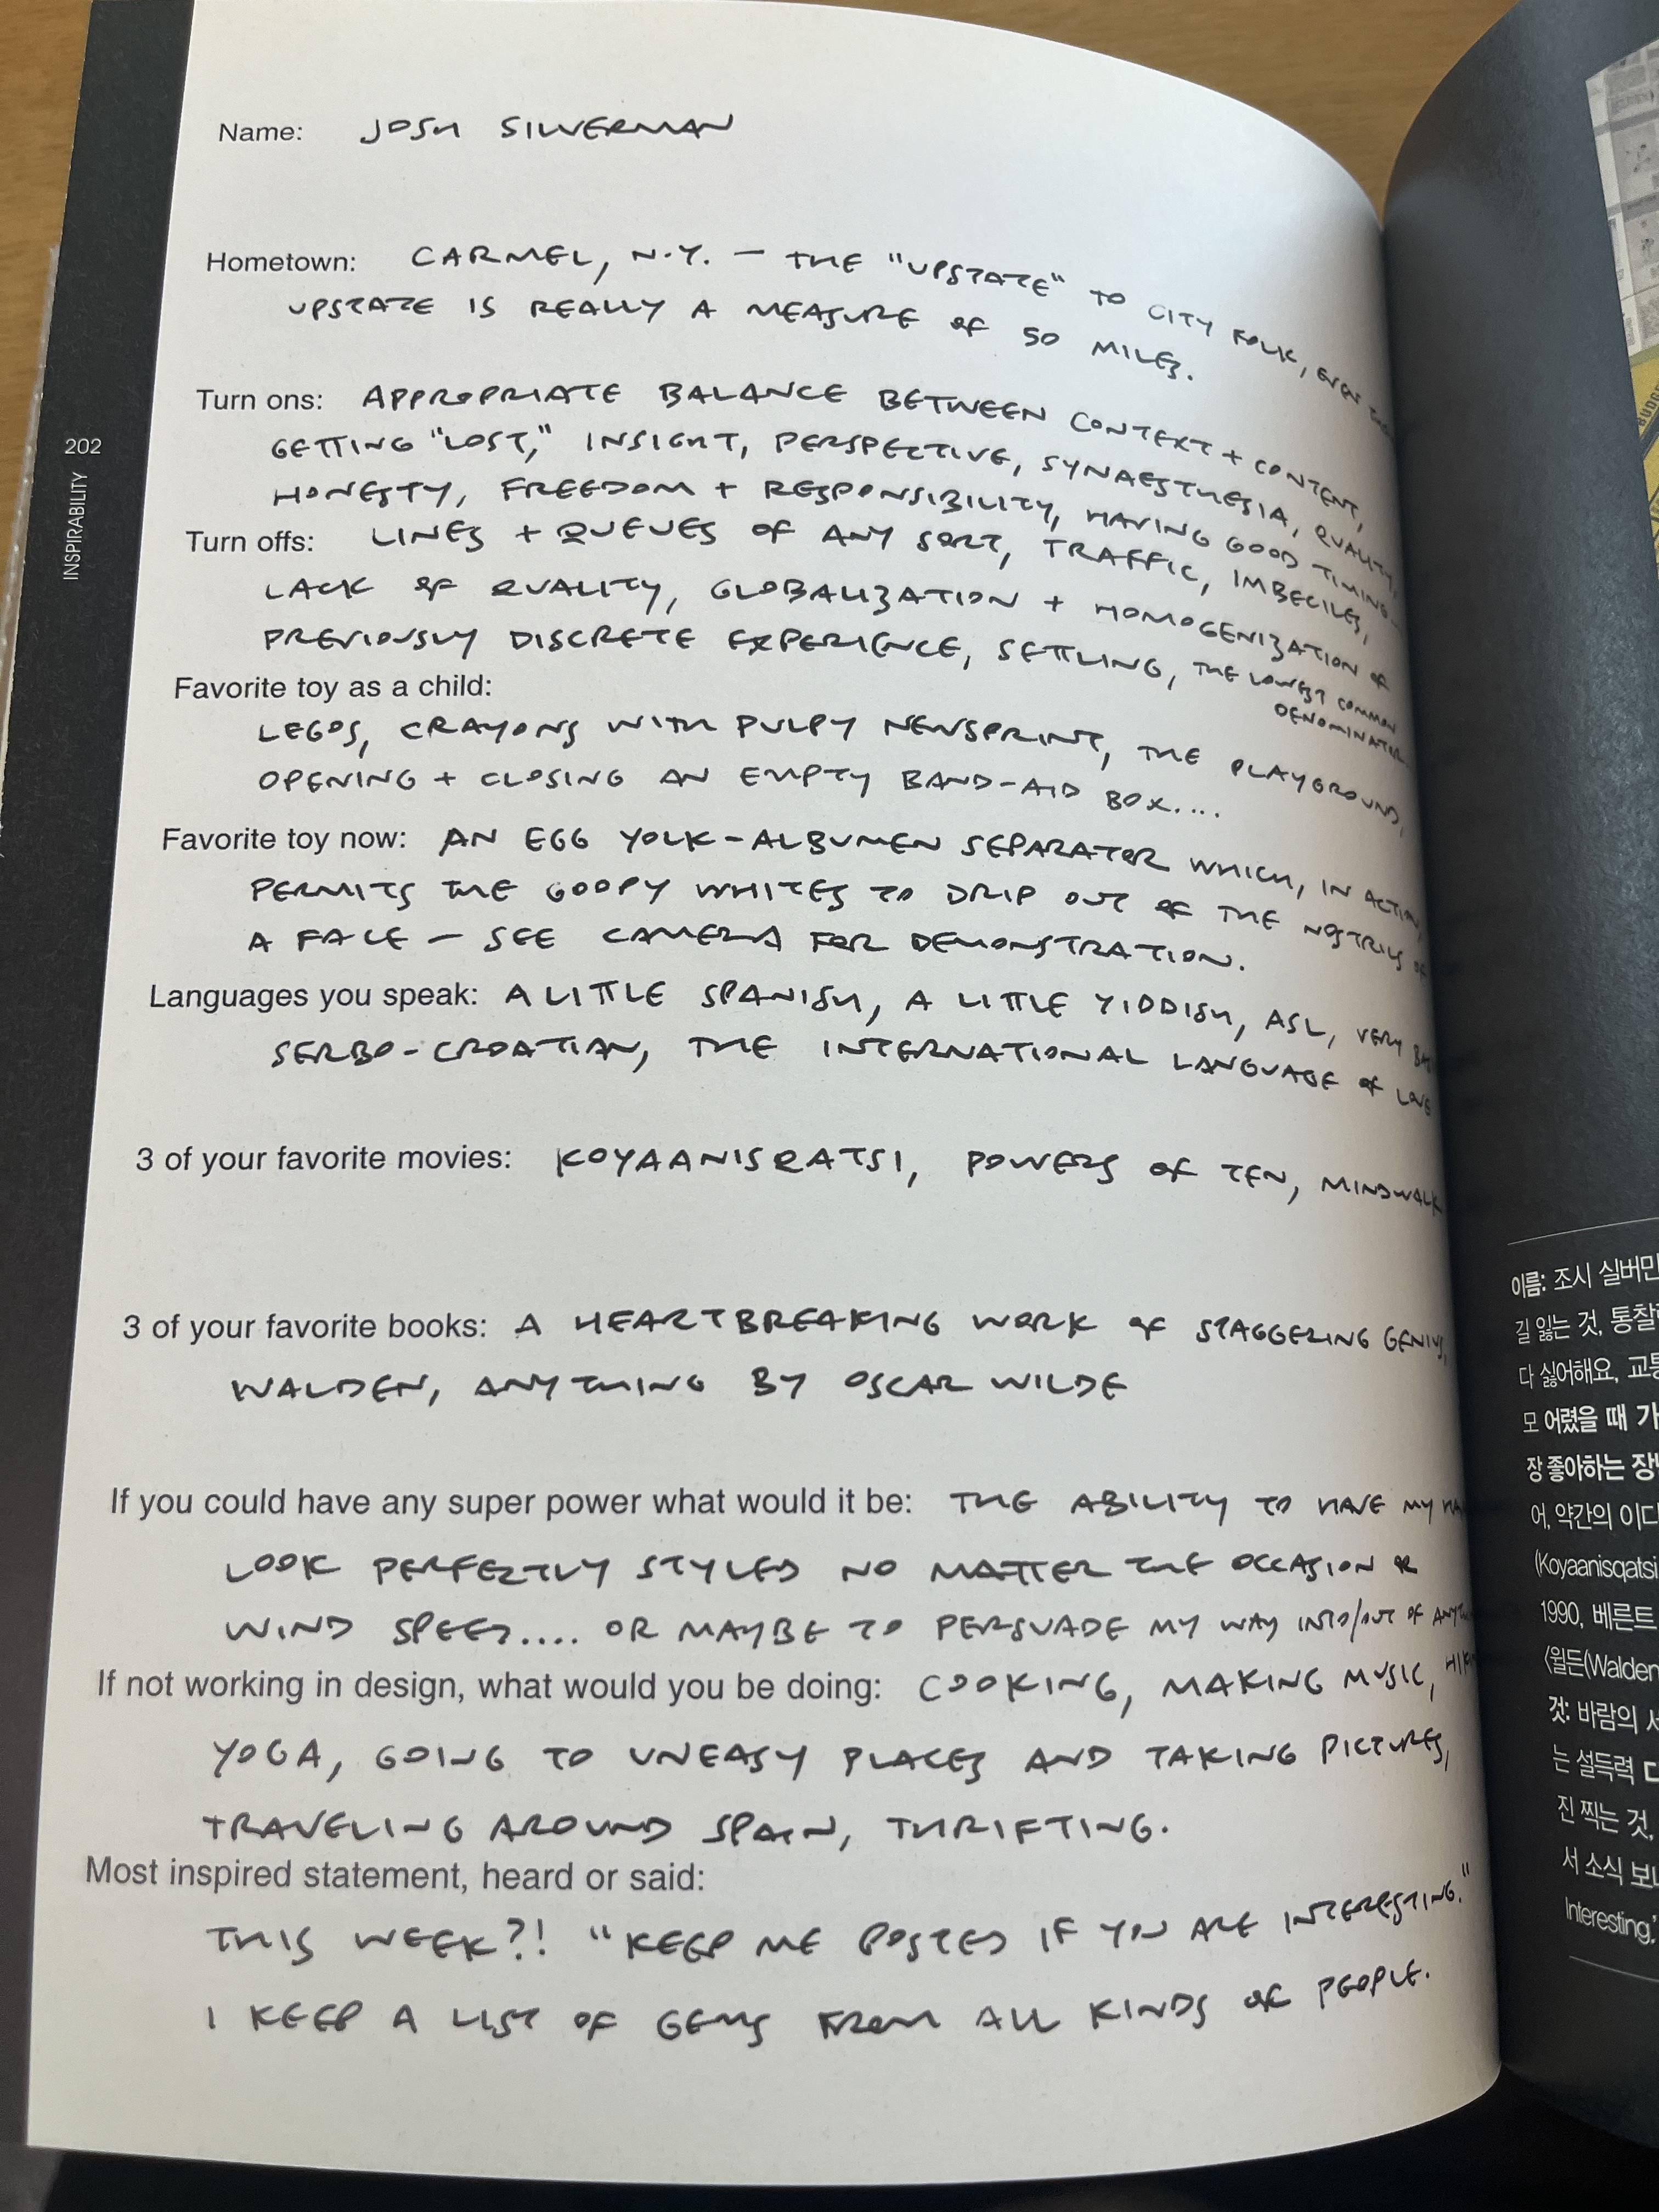 Name: JOSH SILVERMAN
Hometown: CARMEL, N.Y. — THE "UPSTATE" TO CITY FOLK, EVEN
UPSTATE IS REALLY A MEASURE OF 50 MILES.
Turn ons: APPROPRIATE BALANCE BETWEEN CONTEXT + CONTENT,
GETTING "LOST," INSIGHT, PERSPECTIVE, SYNAESTHESIA, QUALITY,
HONESTY, FREEDOM + RESPONSIBILITY, HAVING GOOD TIMING
Turn offs: LINES + QUEUES OF ANY SORT, TRAFFIC, IMBECILES,
LACK OF QUALITY, GLOBALIZATION + HOMOGENIZATION OF
PREVIOUSLY DISCRETE EXPERIENCE, SETTLING, THE LOWEST COMMON
DENOMINATOR
Favorite toy as a child:
LEGOS, CRAYONS WITH PULPY NEWSPRINT, THE PLAYGROUND,
OPENING + CLOSING AN EMPTY BAND-AID BOX....
Favorite toy now: AN EGG YOLK-ALBUMEN SEPARATOR WHICH, IN ACTION,
PERMITS THE GOOPY WHITES TO DRIP OUT OF THE NOSTRILS OF
A FACE — SEE CAMERA FOR DEMONSTRATION.
Languages you speak: A LITTLE SPANISH, A LITTLE YIDDISH, ASL, VERY BAD
SERBO-CROATIAN, THE INTERNATIONAL LANGUAGE OF LOVE
3 of your favorite movies: KOYAANISQATSI, POWERS OF TEN, MINDWALK
3 of your favorite books: A HEARTBREAKING WORK OF STAGGERING GENIUS,
WALDEN, ANYTHING BY OSCAR WILDE
If you could have any super power what would it be: THE ABILITY TO HAVE MY
LOOK PERFECTLY STYLED NO MATTER THE OCCASION OR
WIND SPEED.... OR MAYBE TO PERSUADE MY WAY INTO/OUT OF
If not working in design, what would you be doing: COOKING, MAKING MUSIC,
YOGA, GOING TO UNEASY PLACES AND TAKING PICTURES,
TRAVELING AROUND SPAIN, THRIFTING.
Most inspired statement, heard or said:
THIS WEEK?! "KEEP ME POSTED IF YOU ARE INTERESTING."
I KEEP A LIST OF GEMS FROM ALL KINDS OF PEOPLE.
202
INSPIRABILITY
이름: 조시 실버만
길 잃는 것, 통찰
다 싫어해요, 교통
모 어렸을 때 가
장 좋아하는 장
어, 약간의 이디
(Koyaanisqatsi
1990, 베른트
〈월든(Walden
것: 바람의
는 설득력
진 찍는 것,
서 소식 보
Interesting.'